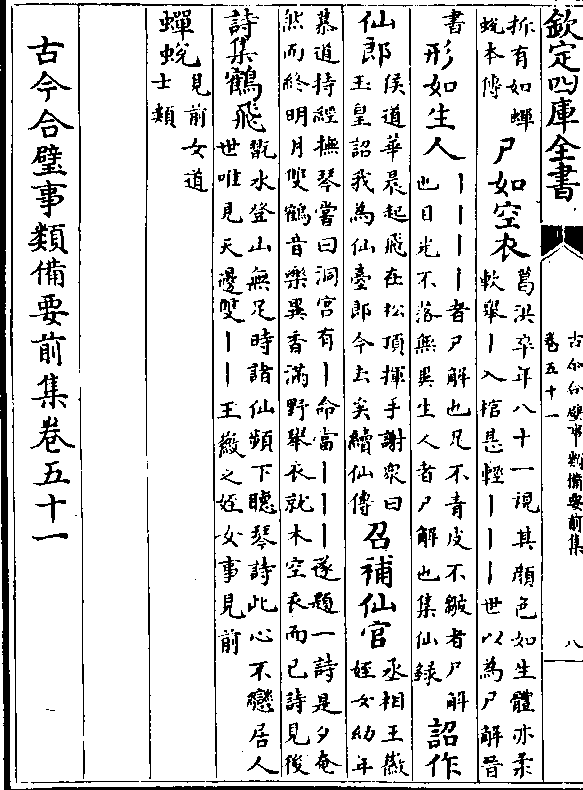 欽定四庫全書
古今合璧事類備要前集
卷五十一
八
拆有如蟬
蛻本傳
尸如空衣
葛洪卒年八十一視其顔色如生體亦柔
軟舉丨入棺甚輕丨丨丨世以為尸解晉
書
形如生人
丨丨丨丨者尸解也足不青皮不皺者尸解
也目光不落無異生人者尸解也集仙録
詔作
仙郎
侯道華晨起飛在松頂揮手謝衆曰
玉皇詔我為仙臺郎今去矣續仙傳
召補仙官
丞相王徽
姪女幼年
慕道持經撫琴嘗曰洞宫有丨命當丨丨丨遂題一詩是夕奄
然而終明月雙鶴音樂異香滿野舉衣就木空衣而已詩見後
詩集
鶴飛
翫水登山無足時諸仙頻下聽琴詩此心不戀居人
世唯見天邊雙丨丨王薇之姪女事見前
蟬蛻
見前女道
士類
古今合璧事類備要前集卷五十一